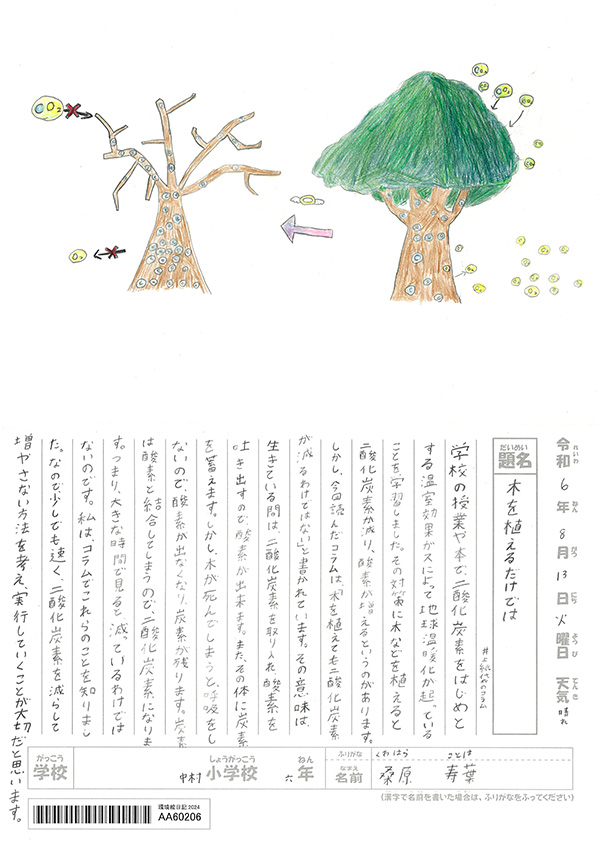 CO₂
CO₂
令和6年8月13日火曜日 天気 晴れ
れいわ ねん がつ にち ようび てんき
だいめい
題名
木を植えるだけでは
#よ紙袋のコラム
学校の授業や本で、二酸化炭素をはじめと
する温室効果がスによって地球温暖化が起っている
ことを学習しました。その対策に木などを植えると
二酸化炭素が減り、酸素が増えるというのがあります。
しかし、今回読んだコラムは、「木を植えても二酸化炭素
が減るわけではない」と書かれています。その意味は、
生きている間は、二酸化炭素を取り入れ、酸素を
吐き出すので、酸素が出来ます。また、その体に炭素
を蓄えます。しかし、木が死んでしまうと、呼吸をし
ないので、酸素が出なくなり、炭素が残ります。炭素
は酸素と結合してしまうので、二酸化炭素になりま
す。つまり、大きな時間で見ると減っているわけでは
ないのです。私は、コラムでこれらのことを知りまし
た。なので少しでも速く、二酸化炭素を減らして
増やさない方法を考え、実行していくことが大切だと思います。
がっこう
学校
中村
しょうがっこう
小学校
六
ねん
年
ふりがな
くわはら ことは
なまえ
名前
桑原 寿葉
(漢字で名前を書いた場合は、ふりがなをふってください)
環境絵日記2024
AA60206